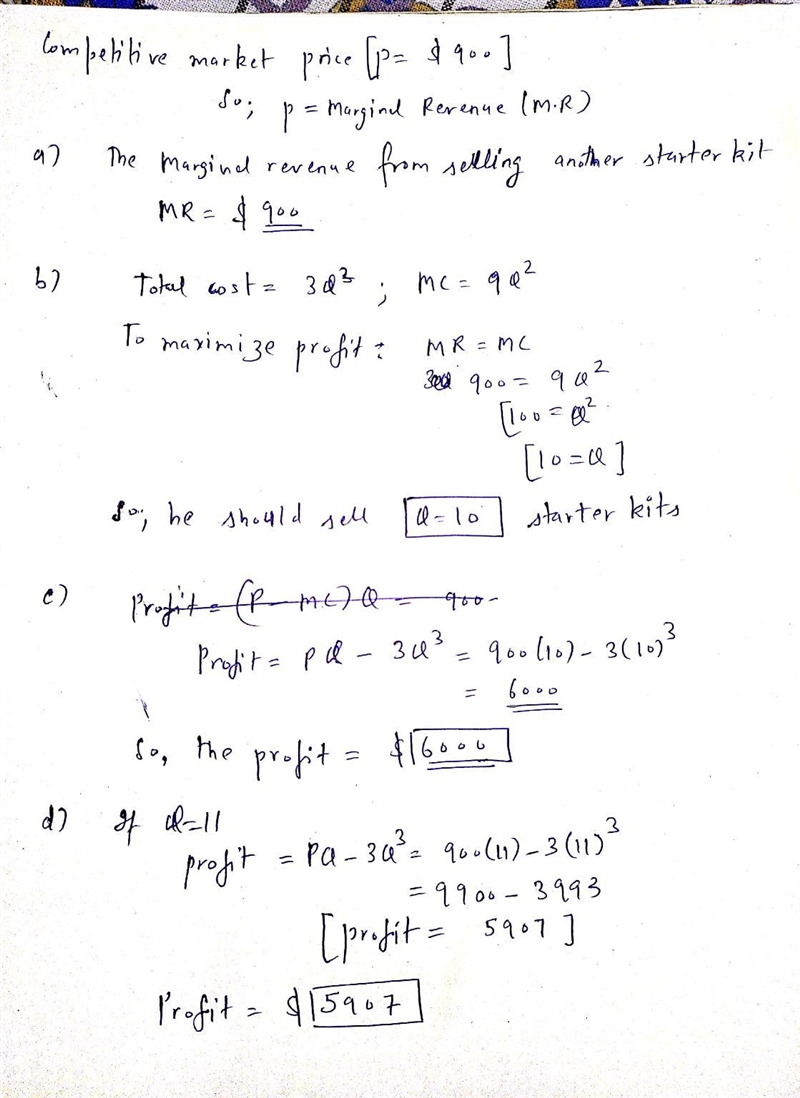 Competitive market price [p= $ 900]
So; p = Marginal Revenue (M.R)
a) The Marginal revenue from selling another starter kit
MR = $ 900
b) Total cost = 3Q³ ; MC = 9Q²
To maximize profit : MR = MC
900 = 9Q²
[100 = Q²
[10 = Q]
So, he should sell Q=10 starter kits
c) Profit = (P - MC) Q = 900-
Profit = PQ - 3Q³ = 900(10) - 3(10)³
= 6000
So, the profit = $ 6000
d) If Q=11
profit = PQ - 3Q³ = 900(11) - 3(11)³
= 9900 - 3993
[profit = 5907]
Profit = $ 5907